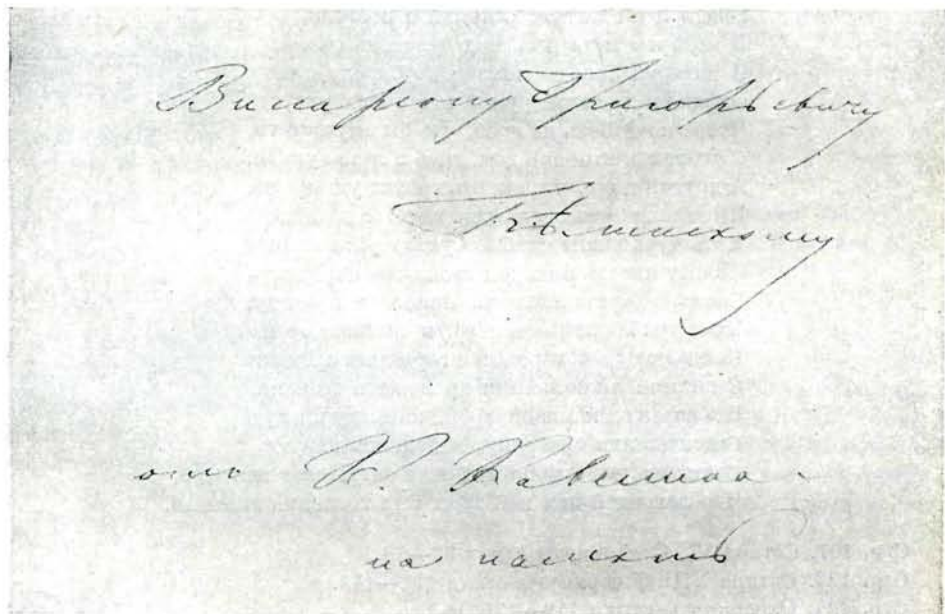 Виссариону Григорьевичу
Бѣлинскому
отъ К. Кавелина
на память